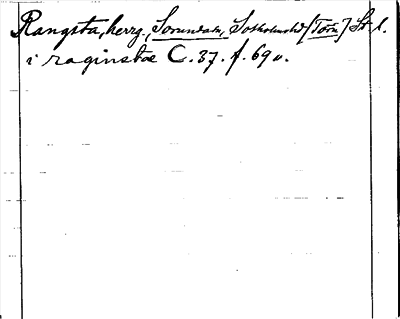 Rangsta, herrg., Sorunda sn, Sotholms hd [Torn] St. l.
i raginstæ C. 37. f. 69 v.